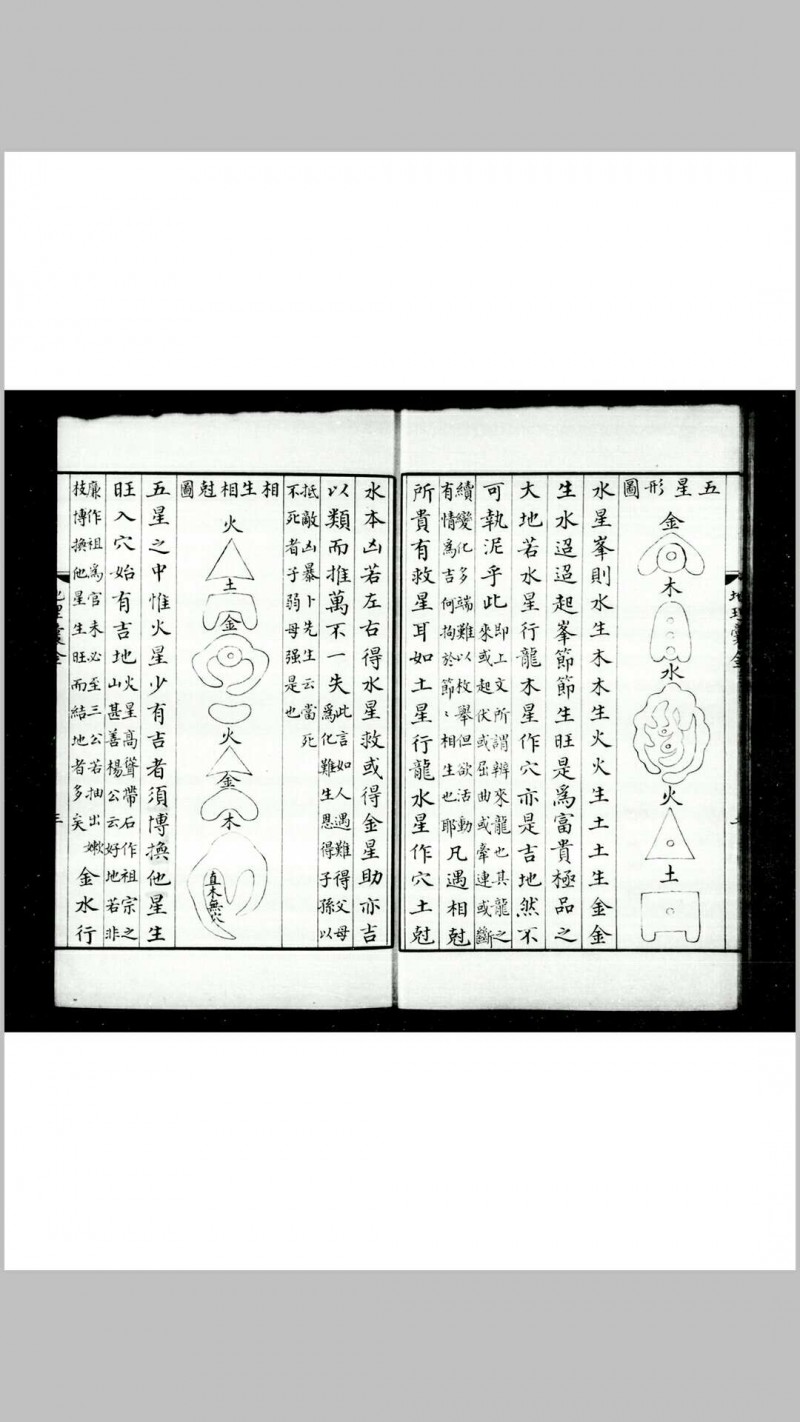 五星形圖
金
木
水
火
土
水星峯則水生木木生火火生土土生金金
生水迢迢起峯節節生旺是爲富貴極品之
大地若水星行龍木星作穴亦是吉地然不
可執泥乎此
即上文所謂辨來龍也其龍之
來或起伏或屈曲或牽連或斷
續變化多端難以枚舉但欲活動
有情爲吉何拘於節〻相生也耶
凡遇相尅
所貴有救星耳如土星行龍水星作穴土尅
水本凶若左右得水星救或得金星助亦吉
以類而推萬不一失
此言如人遇難得父母
爲化難生恩得子孫以
抵敵凶暴卜先生云當死
不死者子弱母强是也
相生相尅圖
火
土
金
火
金
木
直木無穴
五星之中惟火星少有吉者須博換他星生
旺入穴始有吉地
火星高聳帶石作祖宗之
山甚善楊公云好地若非
廉作祖爲官未必至三公若抽出嫩
枝博換他星生旺而結地者多矣
金水行
地理囊金